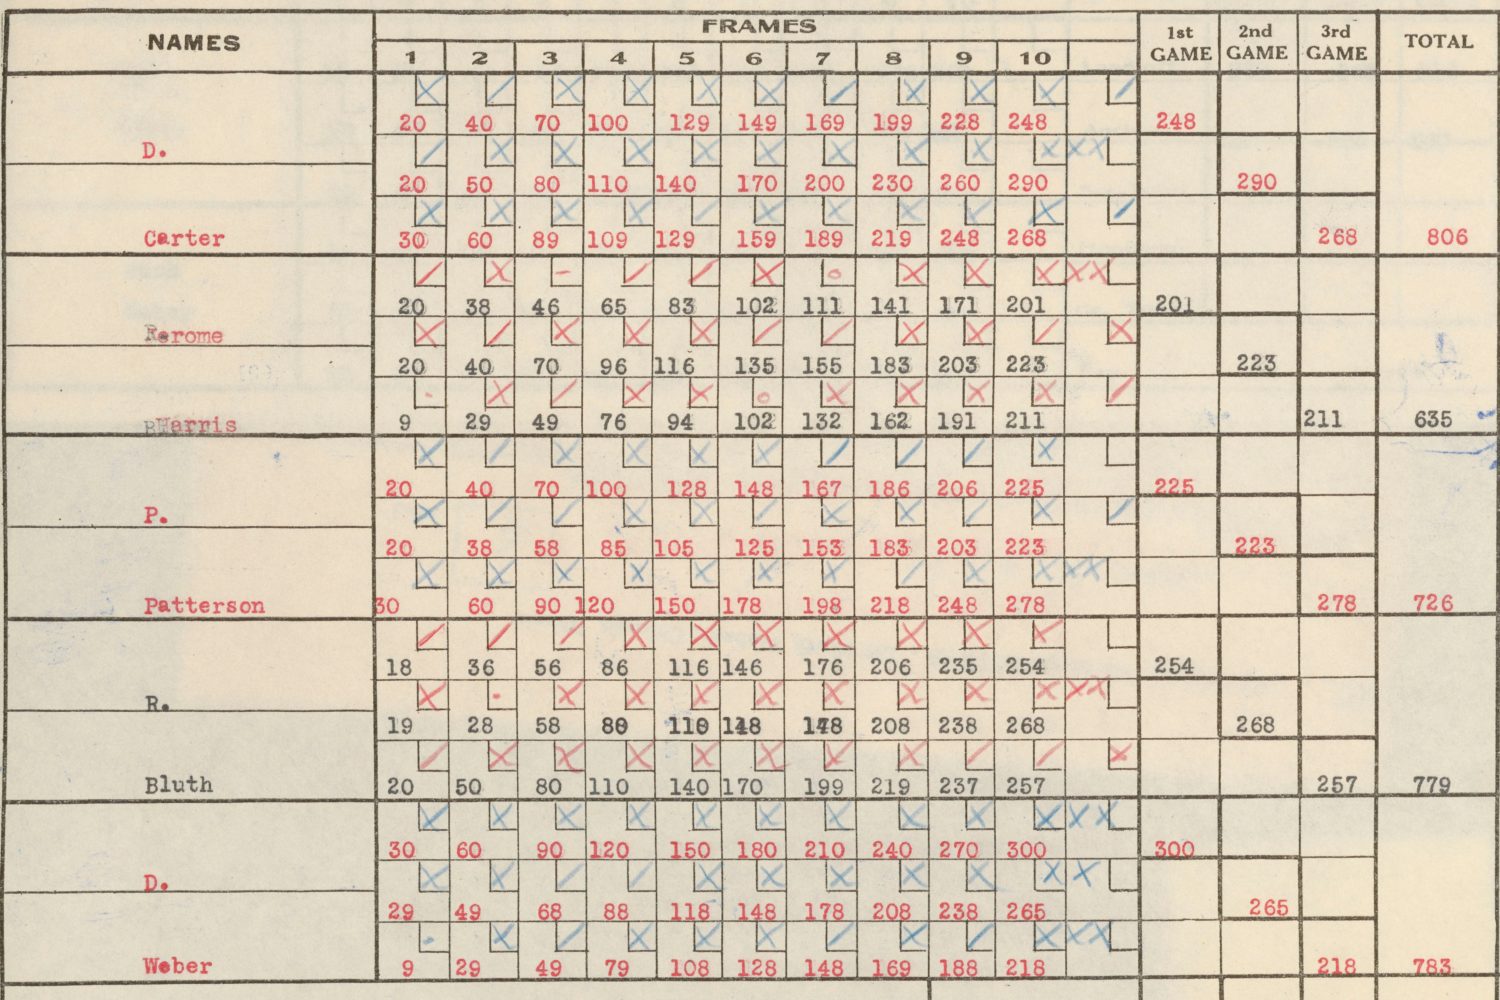 NAMES FRAMES 1st GAME 2nd GAME 3rd GAME TOTAL
1 2 3 4 5 6 7 8 9 10
20 40 70 100 129 149 169 199 228 248 248
D.
20 50 80 110 140 170 200 230 260 290 290
Carter 30 60 89 109 129 159 189 219 248 268 268 806
20 38 46 65 83 102 111 141 171 201 201
Rerome
20 40 70 96 116 135 155 183 203 223 223
Harris 9 29 49 76 94 102 132 162 191 211 211 635
20 40 70 100 128 148 167 186 206 225 225
P.
20 38 58 85 105 125 153 183 203 223 223
Patterson 30 60 90 120 150 178 198 218 248 278 278 726
18 36 56 86 116 146 176 206 235 254 254
R.
19 28 58 110 148 208 238 268 268
Bluth 20 50 80 110 140 170 199 219 237 257 257 779
30 60 90 120 150 180 210 240 270 300 300
D.
29 49 68 88 118 148 178 208 238 265 265
Weber 9 29 49 79 108 128 148 169 188 218 218 783